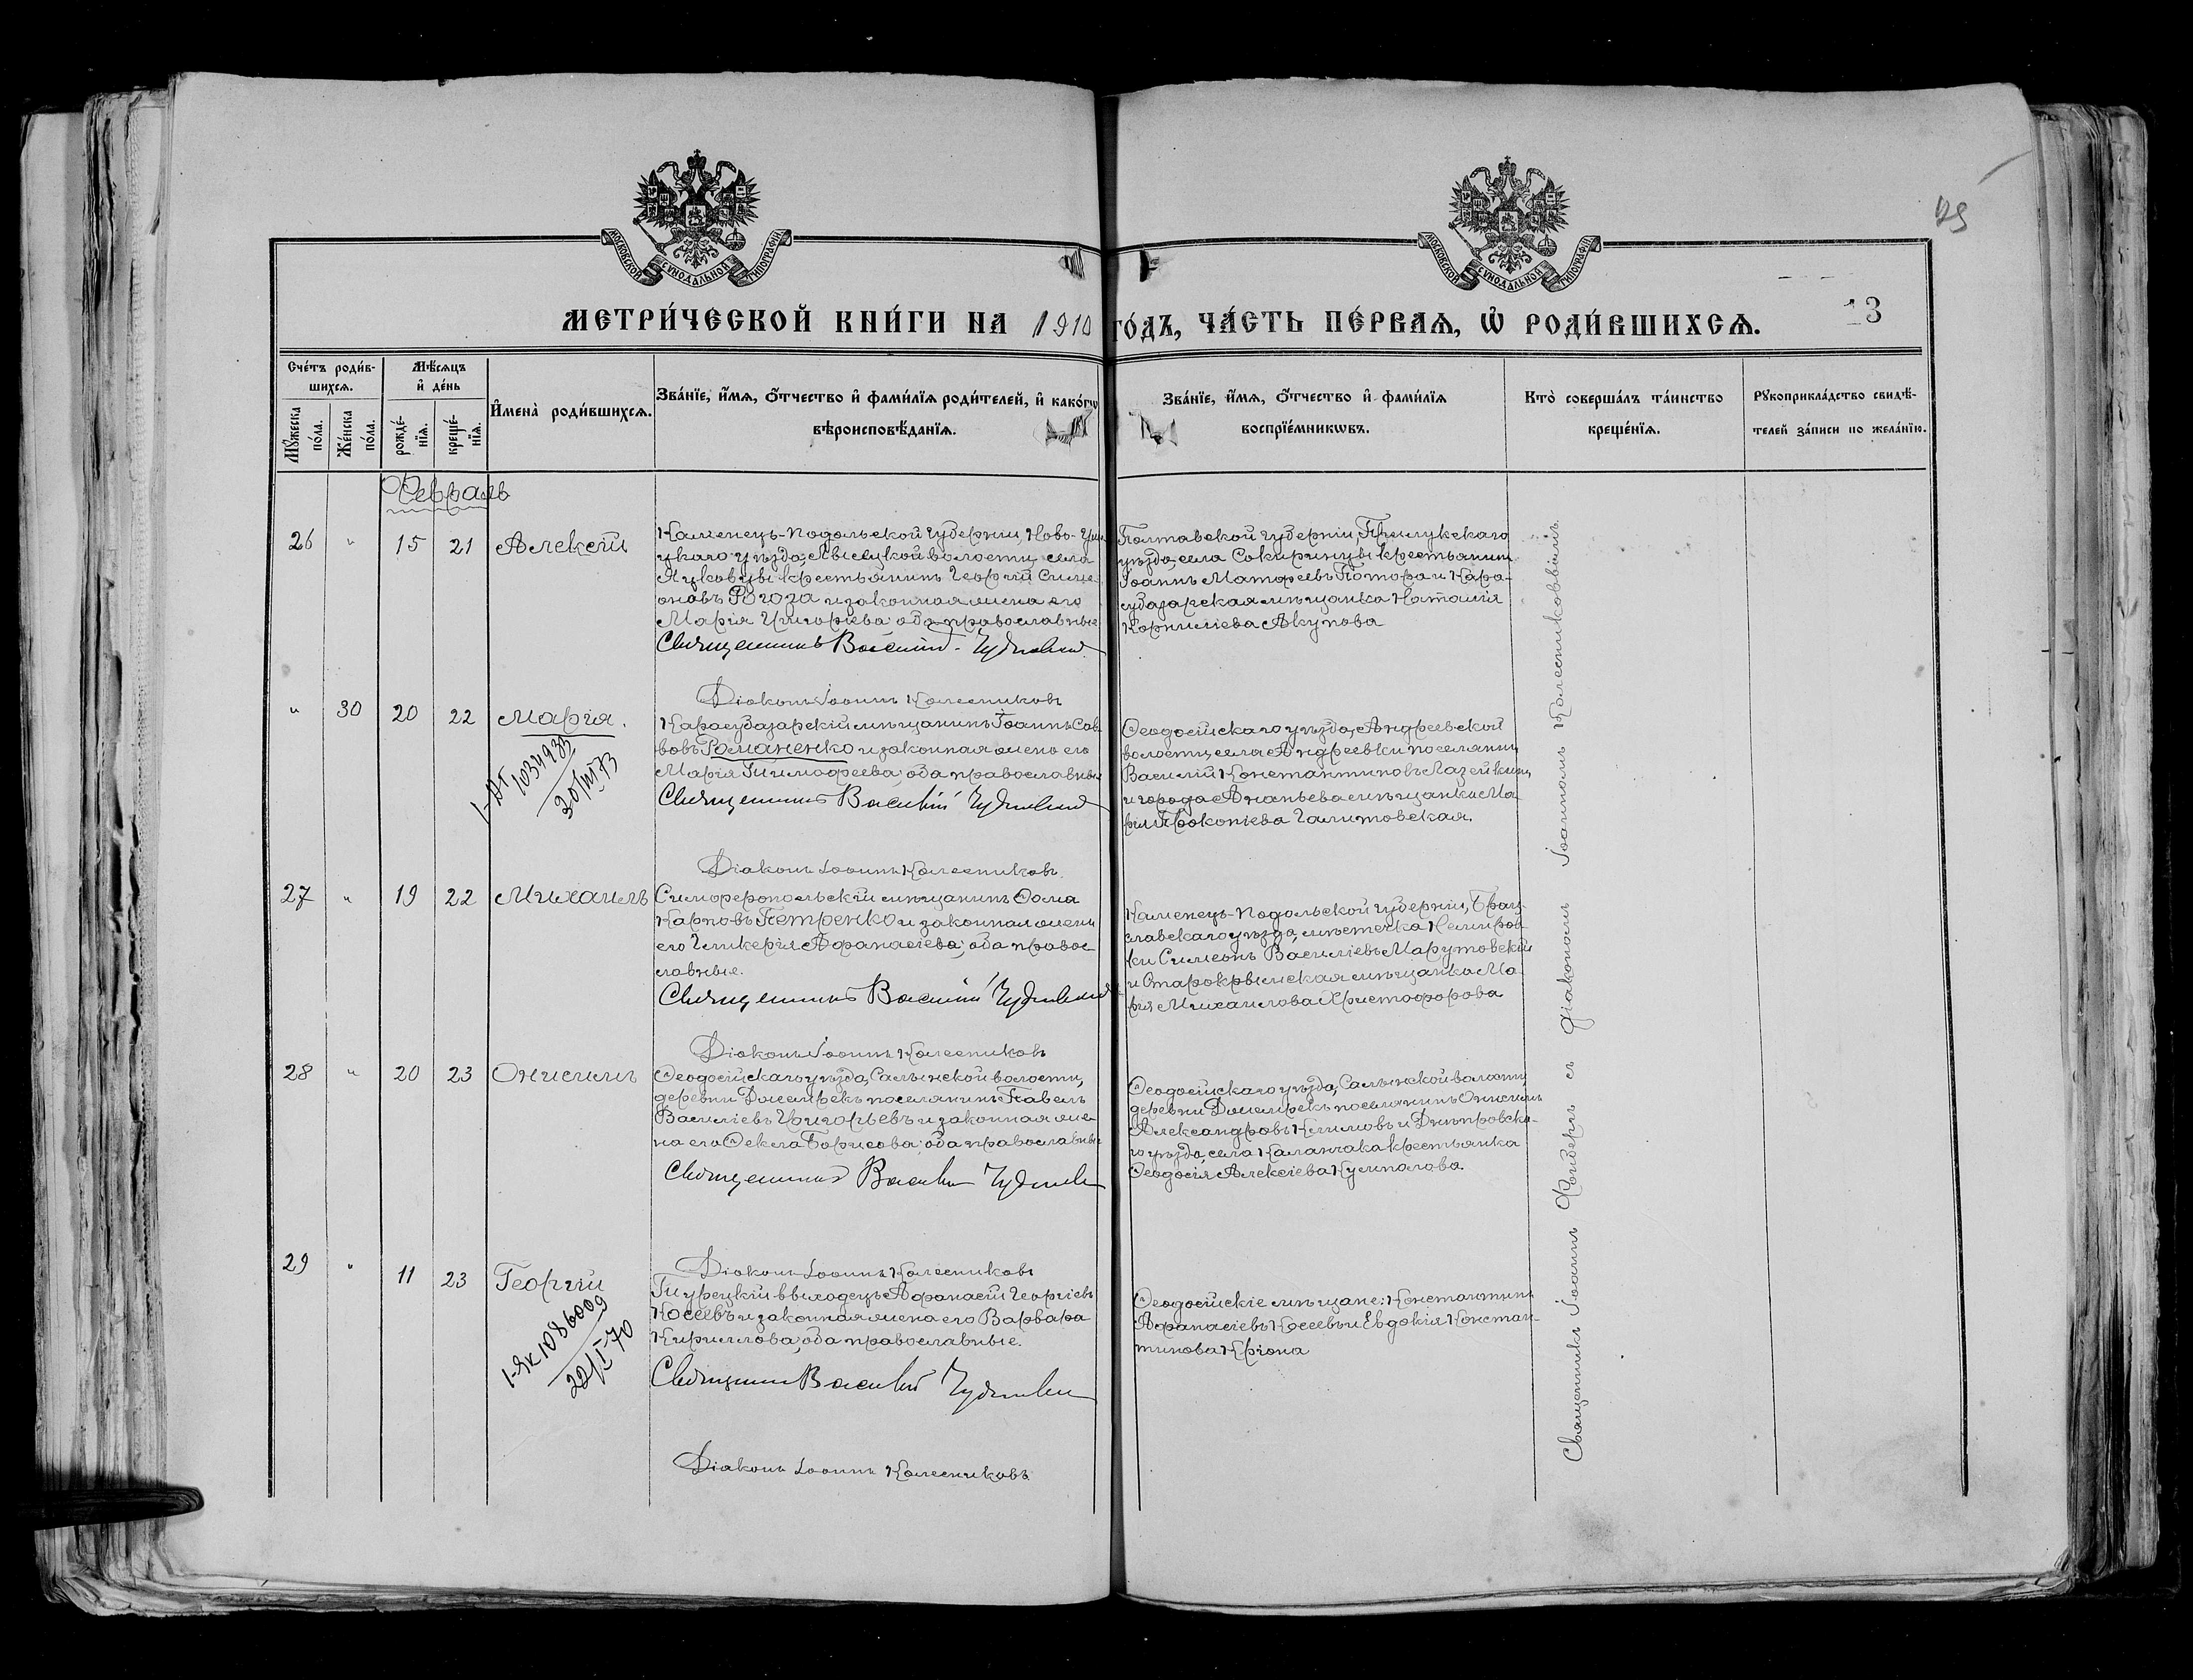 125
МОСКОВСКОЙ СѴНОДАЛЬНОЙ ТИПОГРАФІИ
МОСКОВСКОЙ СѴНОДАЛЬНОЙ ТИПОГРАФІИ
МЕТРИ́ЧЕСКОЙ КНИ́ГИ НА 1910 ГО́ДЪ, ЧА́СТЬ ПЕ́РВАѦ, Ѡ҆ РОДИ́ВШИХСѦ.
13
Сче́тъ роди́в-
шихсѧ.
Мꙋ́жеска по́ла.
Же́нска по́ла.
Мѣ́сѧцъ
и҆ де́нь
рожде́-
нїѧ.
креще́-
нїѧ.
И҆мена̀ роди́вшихсѧ.
Зва́нїе, и҆́мѧ, ѻ҆́тчество и҆ фами́лїѧ роди́телей, и҆ како́гѡ
вѣроисповѣ́данїѧ.
Зва́нїе, и҆́мѧ, ѻ҆́тчество и҆ фами́лїѧ
воспрїе́мникѡвъ.
Кто̀ соверша́лъ та́инство
креще́нїѧ.
Рꙋкоприкла́дство свидѣ́-
телей за́писи по жела́нїю.
Февраль
26 " 15 21 Алексій
Каменецъ-Подольской губерніи, Ново-Уши
цкаго уѣзда, волости, села
крестьянинъ Георгій Симе
оновъ Рогоза и законная жена его
Марія Григоріева; оба православные
Священникъ Василій
Діаконъ Іоаннъ Колесниковъ
Полтавской губерніи, Прилукскаго
уѣзда, села Сокиринцы крестьянинъ
Іоаннъ Матфеевъ и Кара-
субазарская мѣщанка Наталія
Корниліева Акупова
" 30 20 22 Марія.
1034933
30/III 73
Карасубазарскій мѣщанинъ Іоаннъ Сав
вовъ Романенко и законная жена его
Марія Тимофеева; оба православные
Священникъ Василій
Діаконъ Іоаннъ Колесниковъ
Ѳеодосійскаго уѣзда, Андреевской
волости, села Андреевки поселянинъ
Василій Константиновъ Лазейкинъ
и города Ананьева мѣщанка Ма
рія Прокопіева Галитовская.
27 " 19 22 Михаилъ
Симферопольскій мѣщанинъ Ѳома
Карповъ Петренко и законная жена
его Гликерія Афанасіева; оба правос
славные.
Священникъ Василій
Діаконъ Іоаннъ Колесниковъ
Каменецъ-Подольской губерніи, Брац
славскаго уѣзда, мѣстечка Немиров
ки Симеонъ Василіевъ Марутовскій
и Старокрымская мѣщанка Ма
рія Михаилова Христофорова
28 " 20 23 Онисимъ
Ѳеодосійскаго уѣзда, Салынской волости,
деревни поселянинъ Павелъ
Василіевъ Григорьевъ и законная же
на его Ѳекла Борисова; оба православные
Священникъ Василій
Діаконъ Іоаннъ Колесниковъ
Ѳеодосійскаго уѣзда, Салынской волости,
деревни поселянинъ Онисимъ
Александровъ Климовъ и Днѣпровска-
го уѣзда, села Каланчака крестьянка
Ѳеодосія Алексіева
29 " 11 23 Георгій
1-ЯК 1086009
22/I 70
Турецкій выходецъ Афанасій Георгіевъ
Косеевъ и законная жена его Варвара
Кириллова; оба православные.
Священникъ Василій
Діаконъ Іоаннъ Колесниковъ
Ѳеодосійскіе мѣщане: Константинъ
Афанасіевъ Косеевъ и Евдокія Констан-
тинова
Священникъ Іоаннъ съ діакономъ Іоанномъ Колесниковымъ